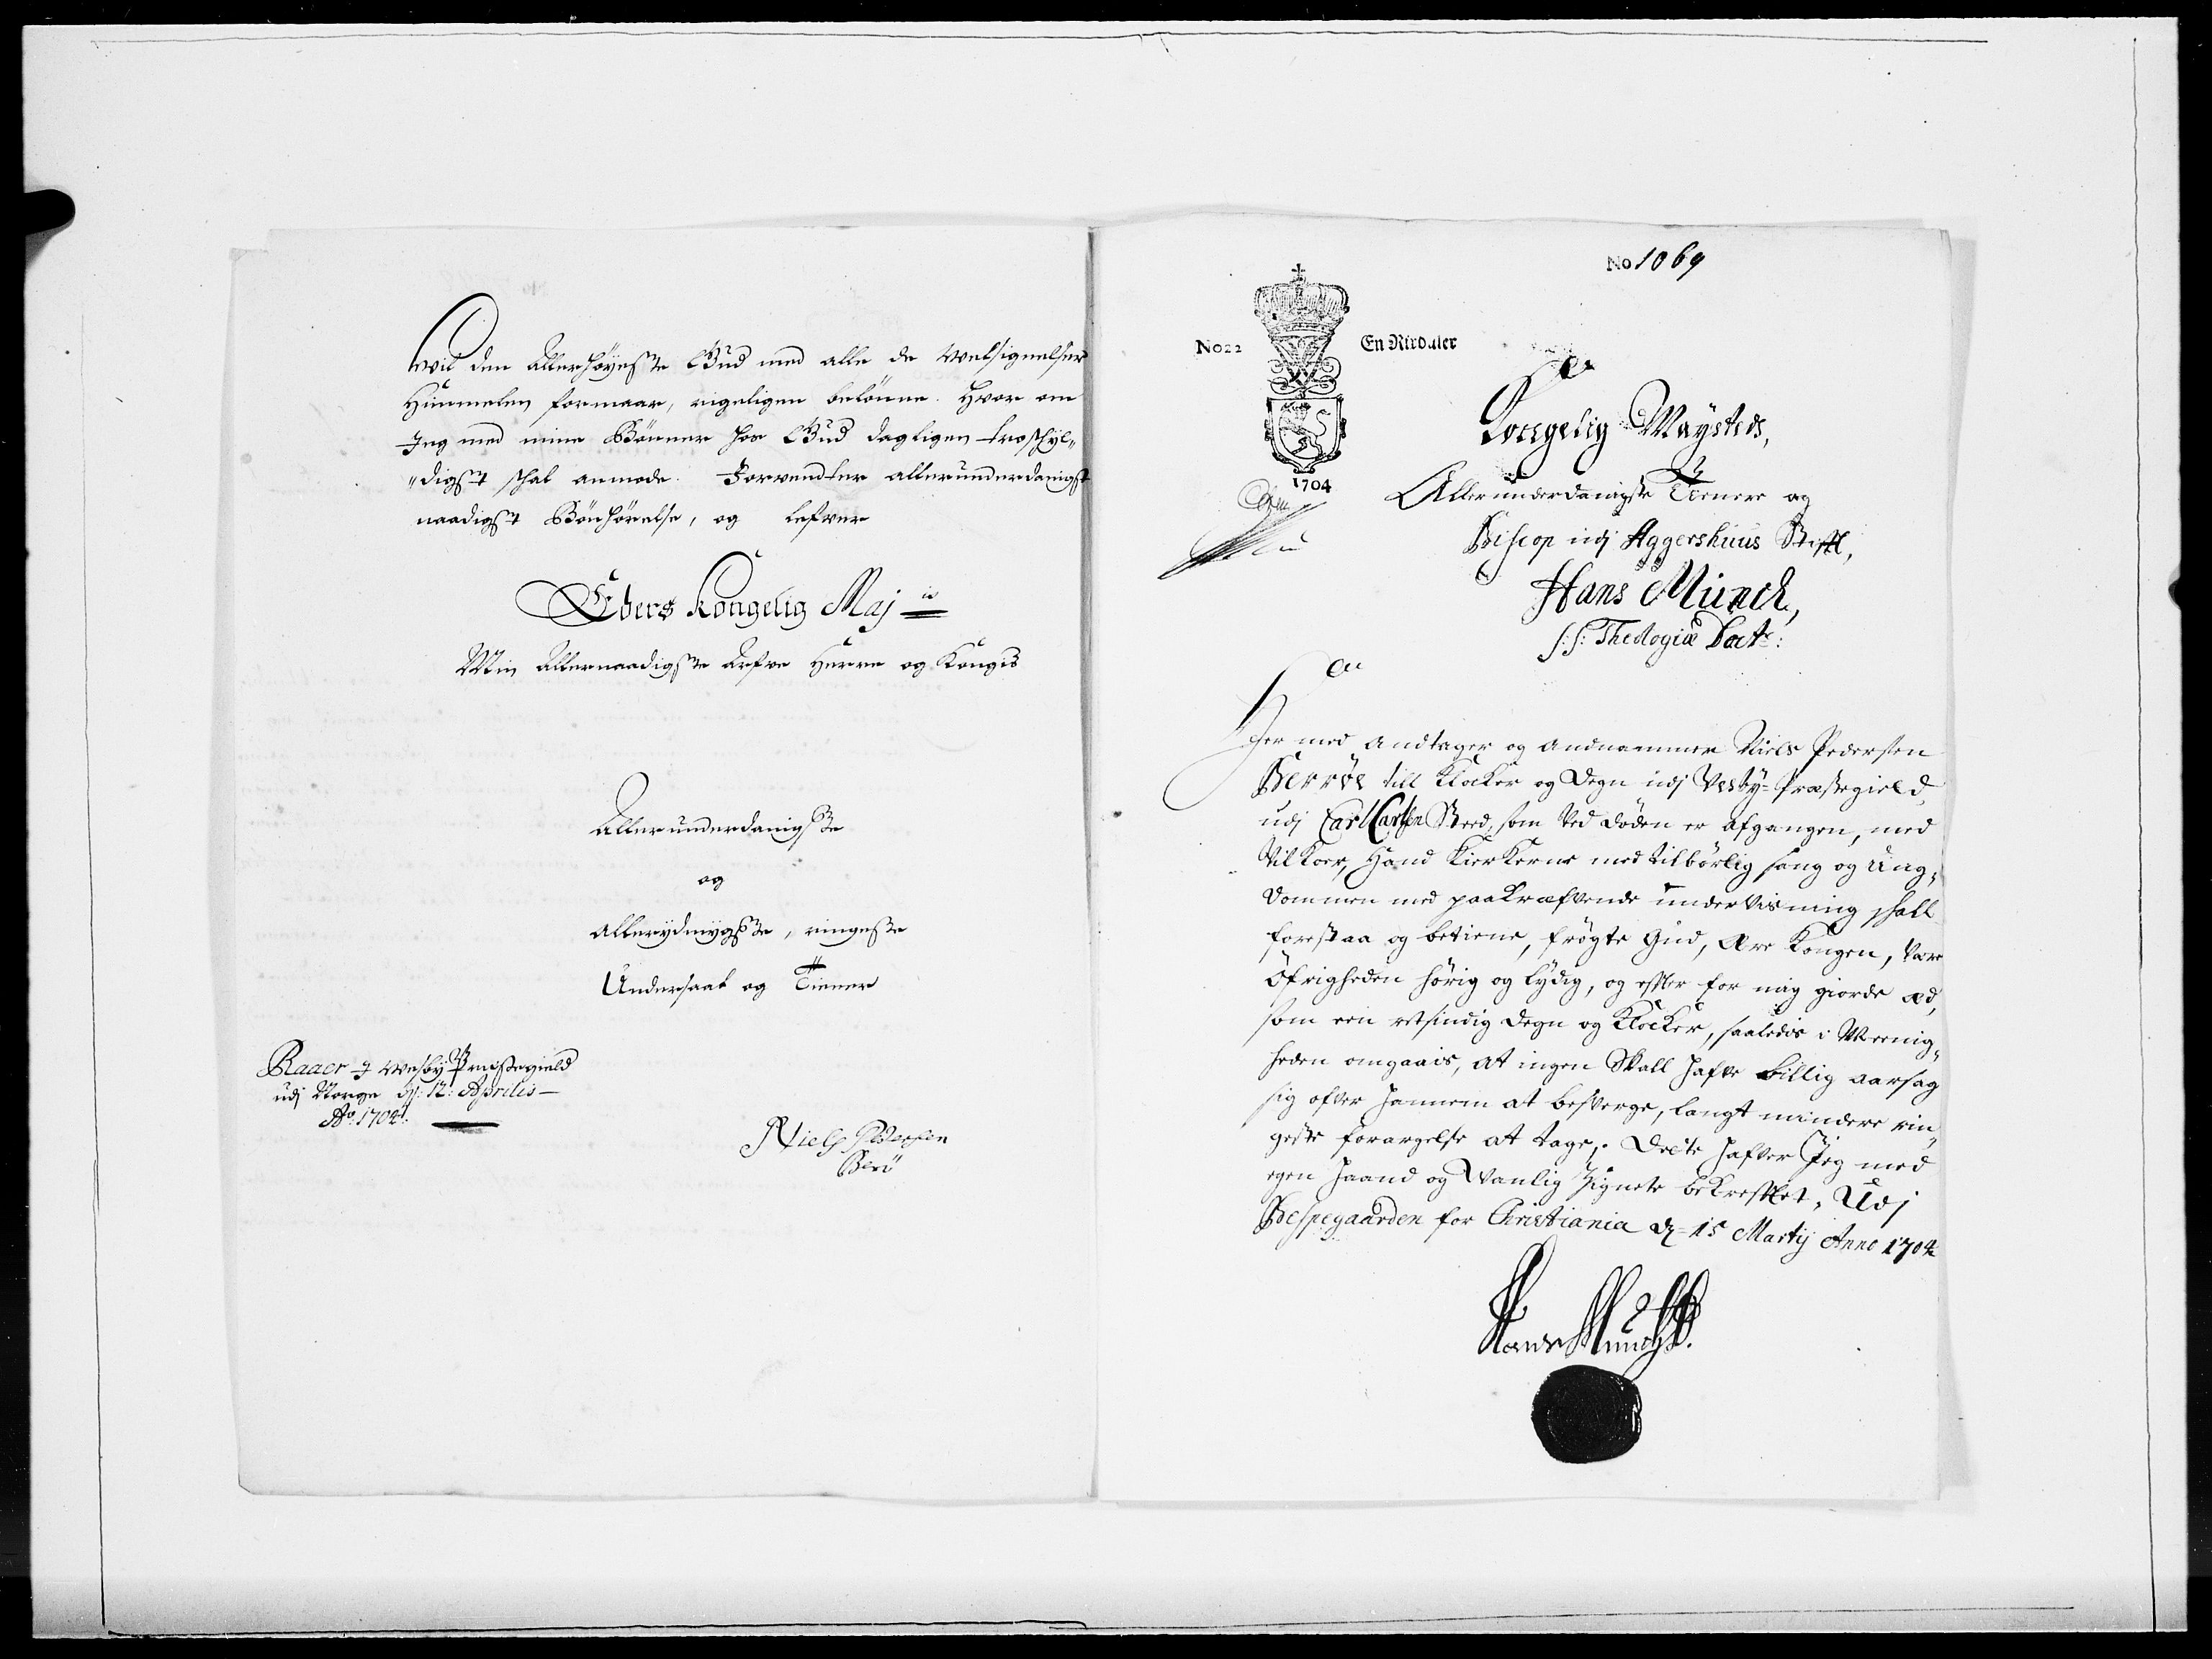 wil den allerhöyeste Gud med alle de welsignelser
Himmelen formaar, rigeligen belönne. Hvor om
Jeg med mine Bönner hos Gud dagligen troschyl„
„digst schal anmode. Forventer allerunderdanigst
naadigst Bönhörelse, og lefver
Eders Kongelig Maj<sup>ts</sup>
Min allernaadigste Arfve Herre og Kongis
Allerunderdanigste
og
allerydmygste, ringeste
Undersaat og Tiener
Raaer I Wesby Præstegield
udj Norge dj: 12: Aprilis
Ao: 1704.
Niels Pedersen
Berö
No 1069
No 22
En Rixdaler
1704
Kongelig Maysteds,
Allerunderdanigste Tienere og
Biscop udj Aggershuus Stifft,
Hans Münch,
S: S: Theologiæ Doct:
Her med Andtager og andnammer Niels Pedersen
Berröe till Klocker og Degn udj Vesby- Præstegield,
udj Carl Carlsen sted, som ved döden er afgangen, med
vilkor, Hand Kierkerne med tilbörlig sang og Ung„
dommen med paakræfvende undervisning skall
forestaa og betiene, frögte Gud, ære Kongen, være
Öfrigheden hörig og lydig, og efter for mig giorde æd,
som een retsindig Degn og Klocker, saaledis i Meenig„
heden omgaais, at ingen Skall hafve billig aarsag
sig ofver hannem at besverge, langt mindere rin„
geste forargelse at tage,. Dette hafver Jeg med
egen Haand og Vanlig Zignete bekrefftet, Udj
Bespegaarden for Christiania d. 15 Martij Anno 1704
Hans Munch